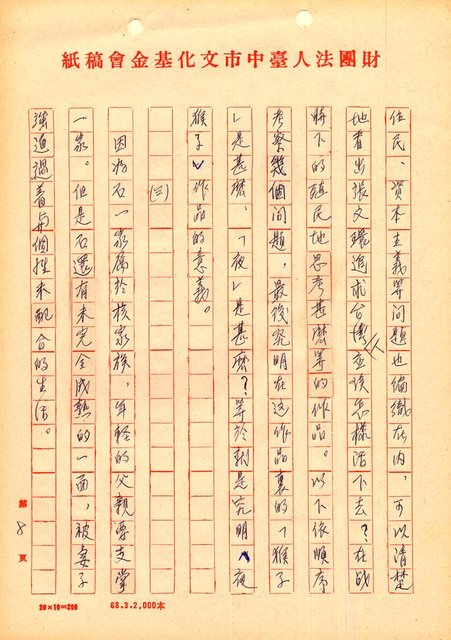 財團法人臺中市文化基金會稿紙
住民、資本主義等問題也編織在內,可以清楚
地看出張文環追求台灣並該怎樣活下去?在戰
時下的殖民地思考甚麼等的作品。以下依順序
考察幾個問題,最後究明在這作品裏的「猴子
」是甚麼,「夜」是甚麼?等於就是究明「夜
猴子」作品的意義。
(三)
因為石一家屬於核家族,年輕的父親要支掌
一家。但是石還有未完全成熟的一面,被妻子
強迫過着與個性未配合的生活。
第 8 頁
20×10=200 68.3.2,000本